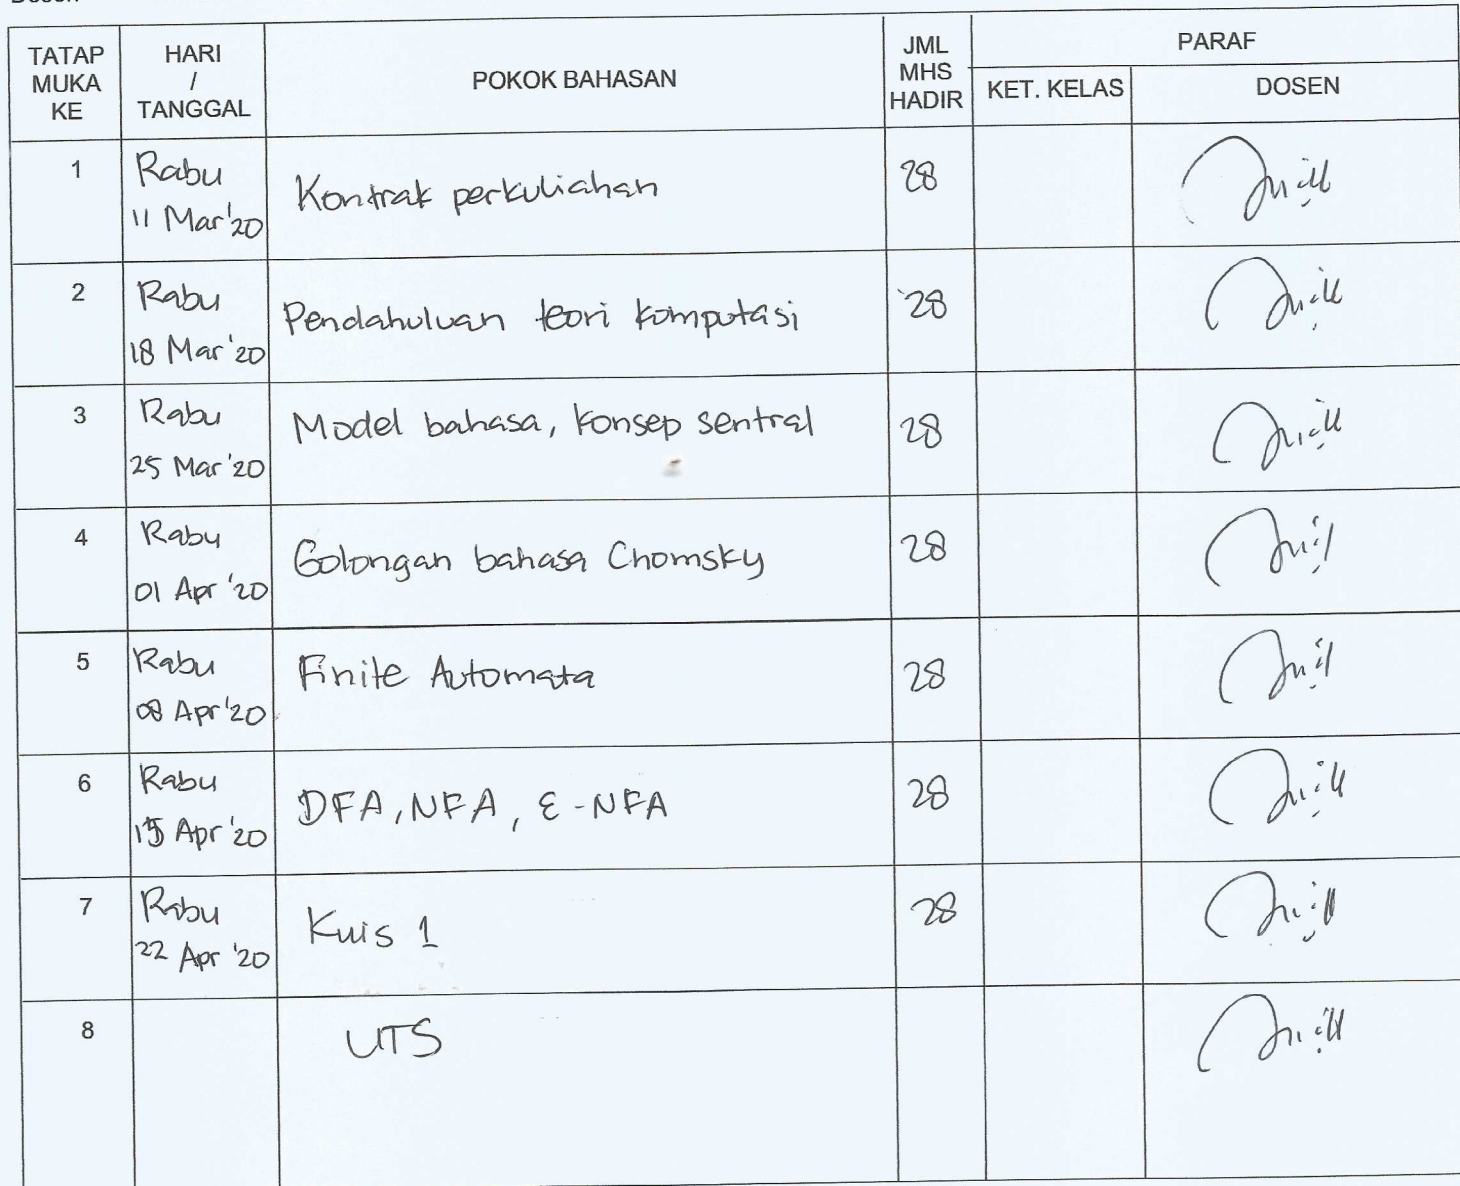 TATAP MUKA KE
HARI / TANGGAL
POKOK BAHASAN
JML MHS HADIR
PARAF
KET. KELAS
DOSEN
1
Rabu
11 Mar'20
Kontrak perkuliahan
28
2
Rabu
18 Mar'20
Pendahuluan teori komputasi
28
3
Rabu
25 Mar'20
Model bahasa, konsep sentral
28
4
Rabu
01 Apr '20
Golongan bahasa Chomsky
28
5
Rabu
08 Apr'20
Finite Automata
28
6
Rabu
15 Apr'20
DFA, NFA, ε-NFA
28
7
Rabu
22 Apr '20
Kuis 1
28
8
UTS